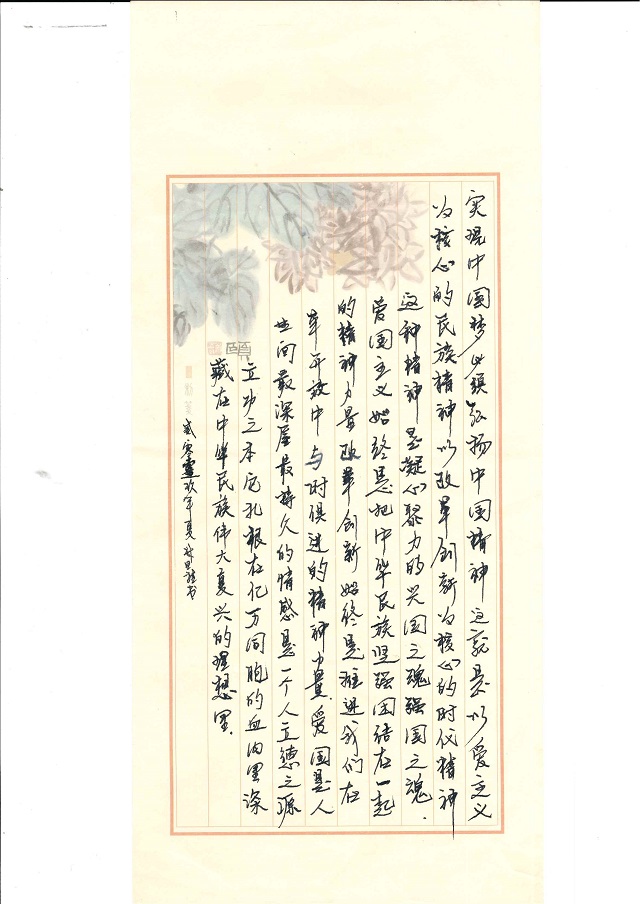 实现中国梦必须弘扬中国精神这就是以爱主义
为核心的民族精神以改革创新为核心的时代精神
这种精神是凝心聚力的兴国之魂强国之魂.
爱国主义始终是把中华民族坚强团结在一起
的精神力量改革创新始终是推进我们在
革开放中与时俱进的精神力量.爱国是人
世间最深层最持久的情感是一个人立德之源
立功之本它扎根在亿万同胞的血肉里深
藏在中华民族伟大复兴的理想里.
年夏
书
颐